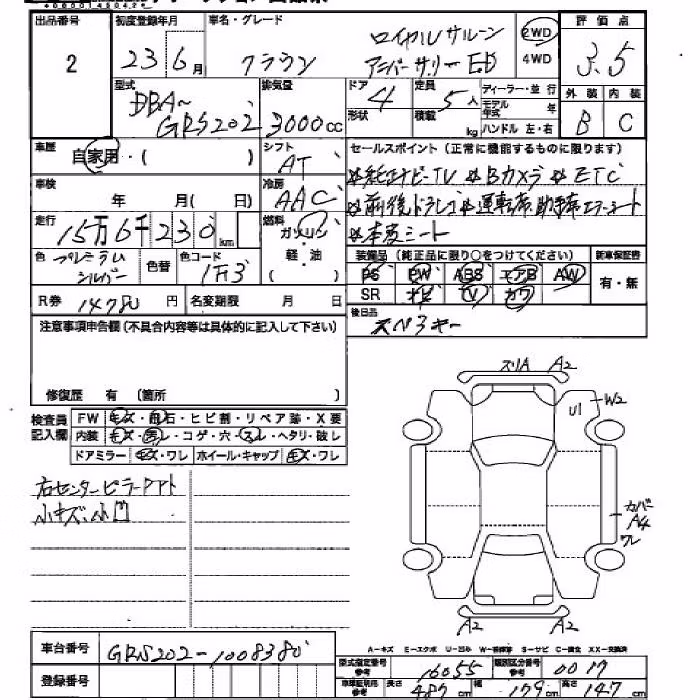 出品番号 初度登録年月 車名・グレード 評価点
2 23年6月 クラウン ロイヤルサルーン 2WD 3.5
アニバーサリーED 4WD
型式 排気量 ドア 定員 ディーラー・並行 外装 内装
DBA~ GRS202 3000cc 4 5人 モデル年式 年 B C
形状 積載 kg ハンドル 左・右
車歴 自家用・( ) シフト AT セールスポイント(正常に機能するものに限ります)
☆純正ナビ・TV ☆Bカメラ ☆ETC
車検 年 月( 日) 冷房 AAC
☆前後ドラレコ ☆運転席助手席エアーシート
走行 15万6千230km 燃料 ガソリン・軽油( )
☆本皮シート
色 プレミアムシルバー 色替 色コード 1F3
装備品(純正品に限り○をつけてください) 新車保証書
PS PW ABS エアB AW 有・無
R券 14780円 名変期限 月 日
SR ナビ TV カワ
注意事項申告欄(不具合内容等は具体的に記入して下さい)
後日品
スペアキー
修復歴 有 (箇所 )
検査員記入欄 FW キズ・飛石・ヒビ割・リペア跡・X要
内装 キズ・汚レ・コゲ・穴・スレ・ヘタリ・破レ
ドアミラー キズ・ワレ ホイール・キャップ キズ・ワレ
スリA A2
U1 W2
右センターピラーアウト
小キズ、小凹
カバー
A4
ワレ
A2 A2
A-キズ E-エクボ U-凹み W-補修跡 S-サビ C-腐食 XX-交換済
車台番号 GRS202-1008380
型式指定番号 参考 16055 類別区分番号 参考 0017
登録番号
車庫証明用 参考 長さ 487cm 幅 179cm 高さ 147cm